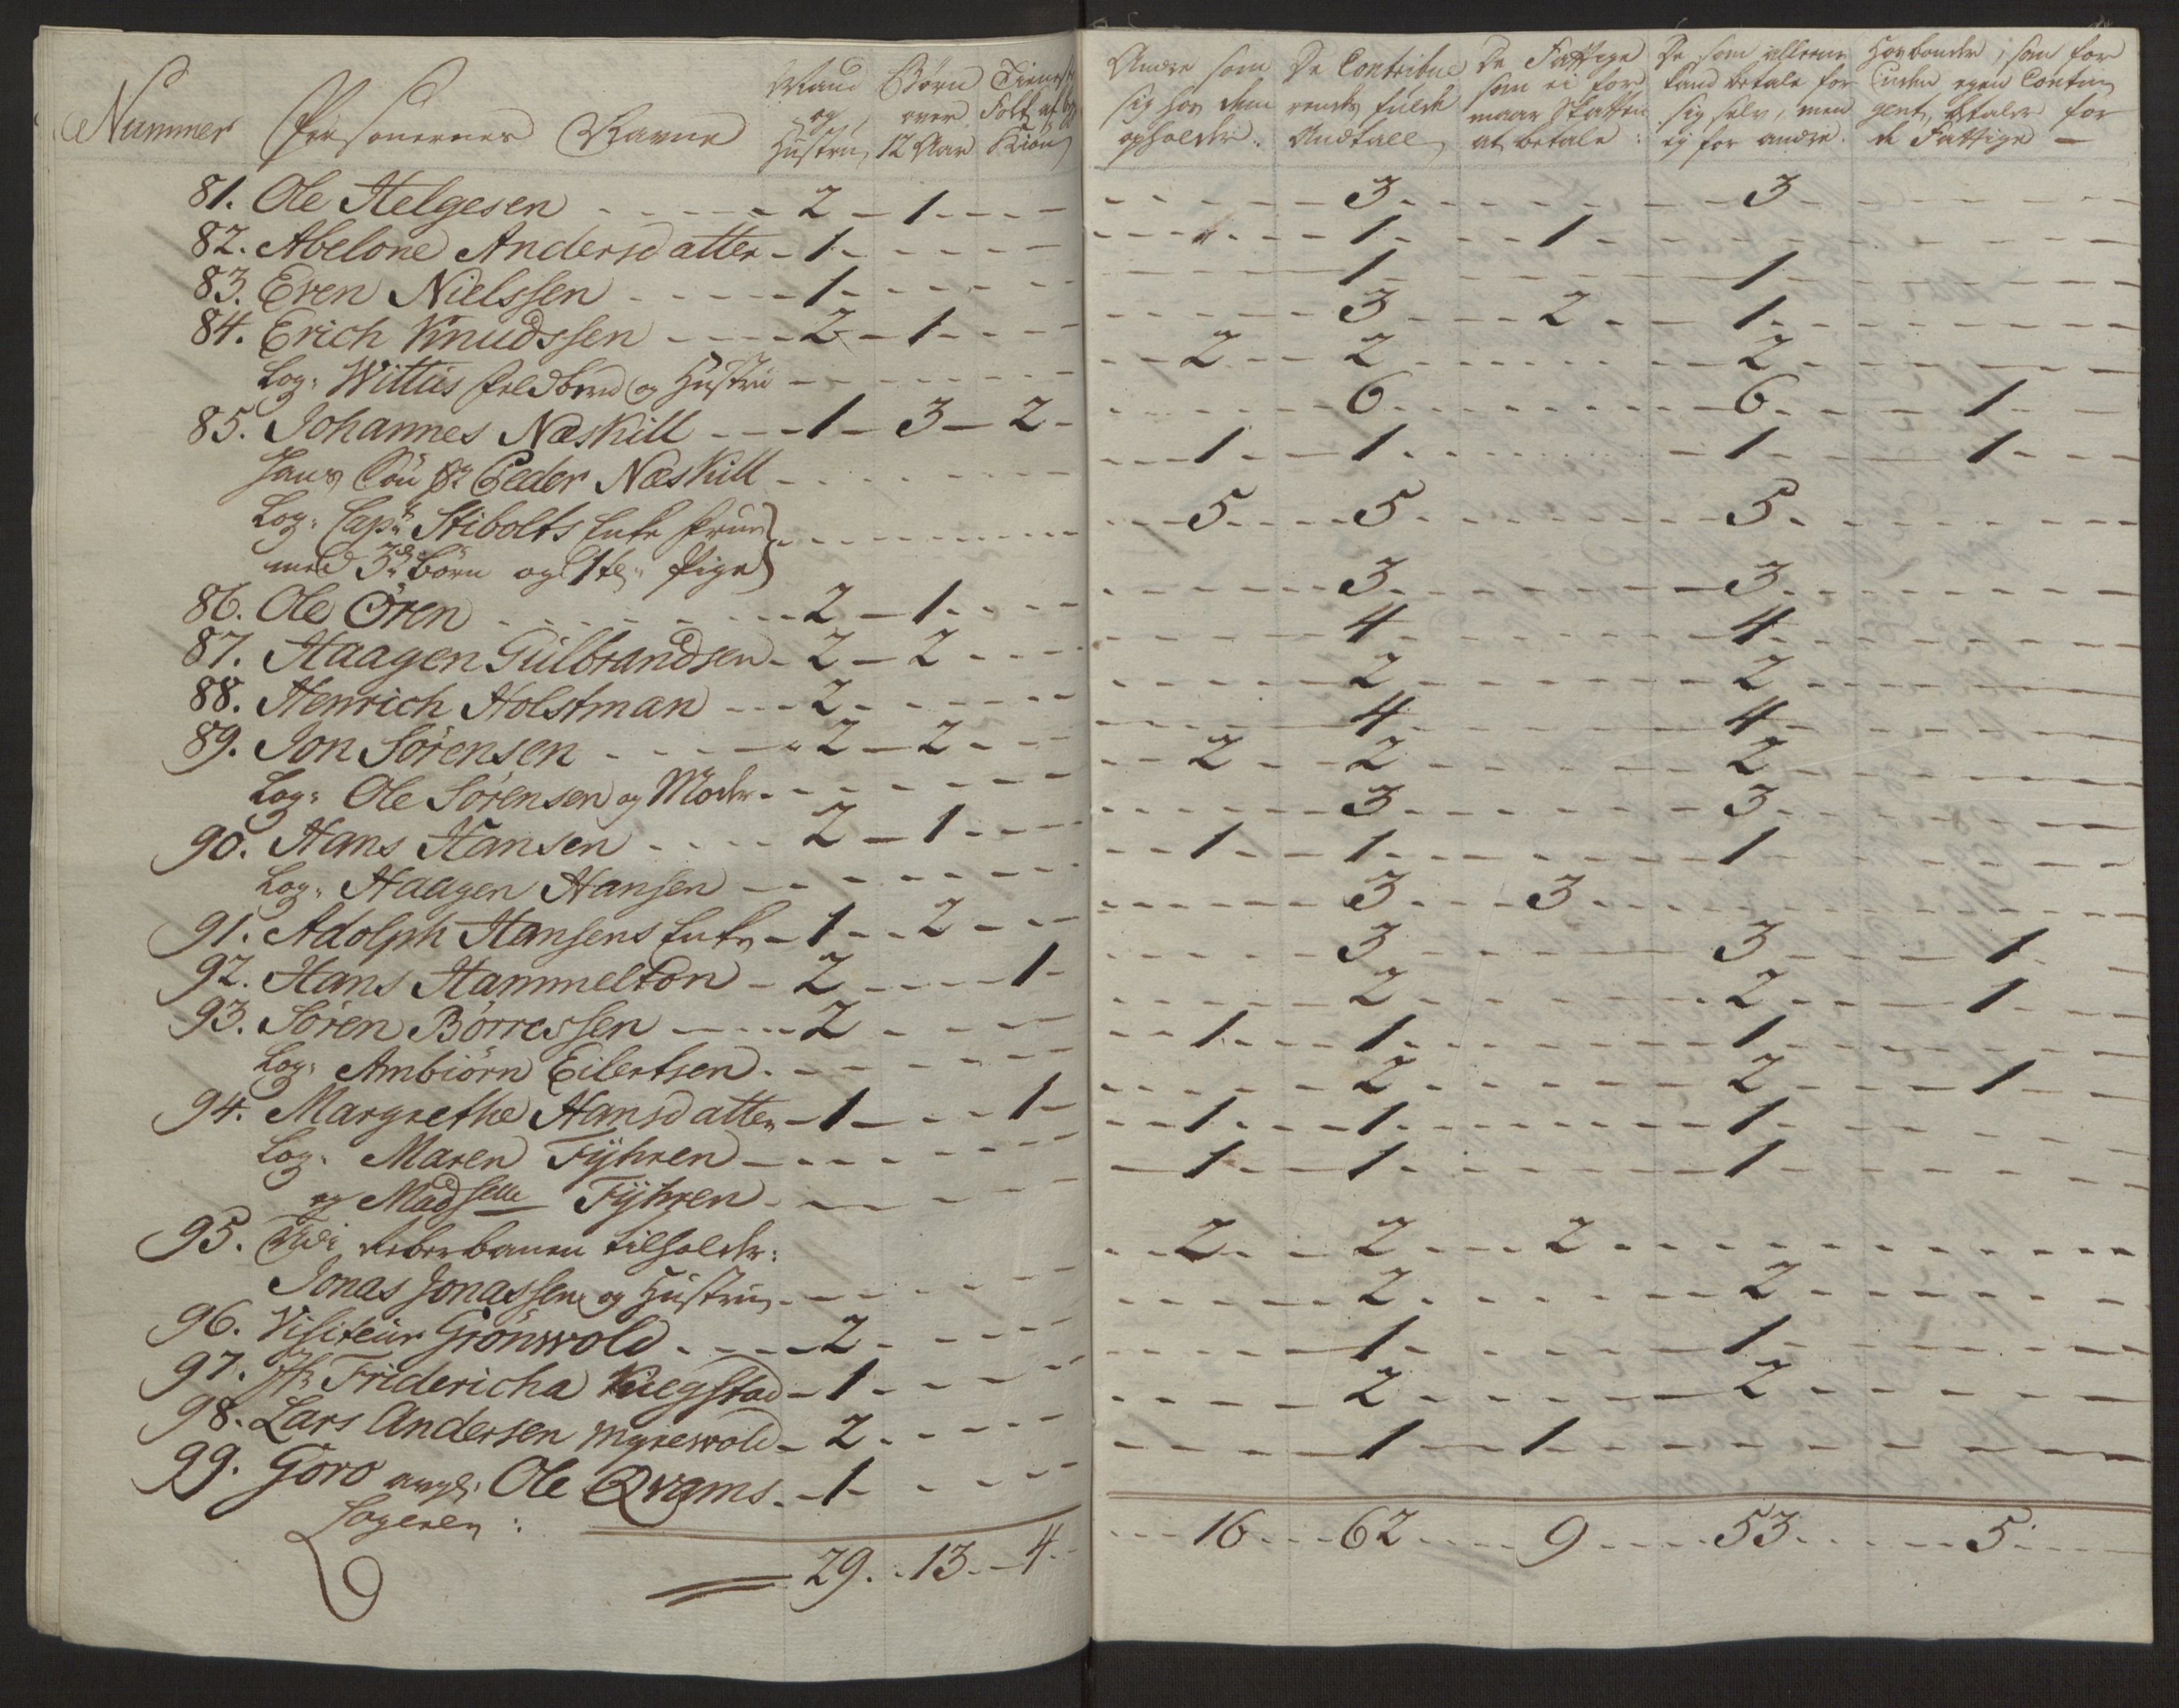 Nummer Personernes Navne Mand og Hustru Børn over 12 Aar Tieneste Folk af begge Kiøn Andre som sig hos dem opholder. De Contribuerendes fulde Andtall De Fattige som ei formaar Skatten at betale: De som alleene kand betale for sig selv, men ej for andre. Hosbonder, som foruden egen Contingent, betaler for de Fattige —
81. Ole Helgesen 2 1 3 3
82. Abelone Andersdatter 1 1 1
83. Even Nielssen 1 1 1
84. Erich Knudssen 2 1 3 2 1
Log: Wittus og Hustru 2 2 2
85. Johannes Næskill 1 3 2 6 6 1
Hans Søn Sr Peder Næskill 1 1 1 1
Log: Capt: Stibolts Enke Frue
med 3de Børn og 1te Pige 5 5 5
86. Ole Ören 2 1 3 3
87. Haagen Gulbrandsen 2 2 4 4
88. Henrich Holstman 2 2 2
89. Jon Sörensen 2 2 4 4
Log: Ole Sörensen og Moder 2 2 2
90. Hans Hansen 2 1 3 3
Log: Haagen Hansen 1 1 1
91. Adolph Hansens Enke 1 2 3 3
92. Hans Hammelton 2 1 3 3 1
93. Sören Börressen 2 2 2 1
Log: Ambiörn Eilertsen 1 1 1
94. Margrethe Hansdatter 1 1 2 2 1
Log: Maren Fÿhren 1 1 1
og Madselle Fÿhren 1 1 1
95. Ved Reberbanen tilholder:
Jonas Jonassen og Hustru 2 2 2
96. Visiteur Grönwold 2 2 2
97. Jfr Fridericha Kuegstad 1 1 1
98. Lars Andersen Myrewold 2 2 2
99. Goro Ole Qvams 1 1 1
Logerer:
29 13 4 16 62 9 53 5